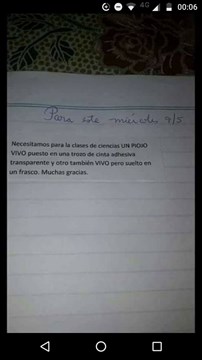 4G 00:06
Para este miércoles 9/5
Necesitamos para la clases de ciencias UN PIOJO
VIVO puesto en una trozo de cinta adhesiva
transparente y otro también VIVO pero suelto en
un frasco. Muchas gracias.